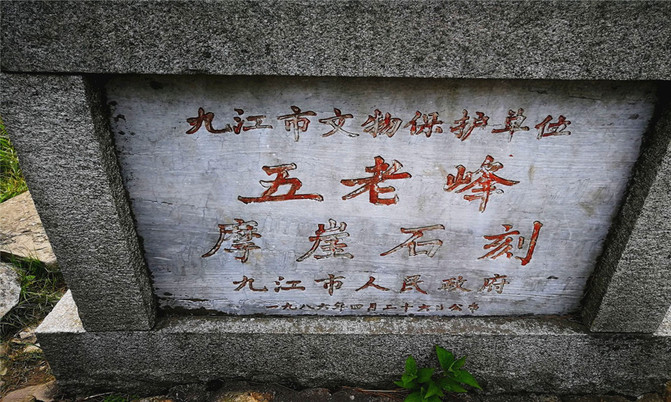 九江市文物保护单位
五老峰
摩崖石刻
九江市人民政府
一九八六年四月二十六日公布